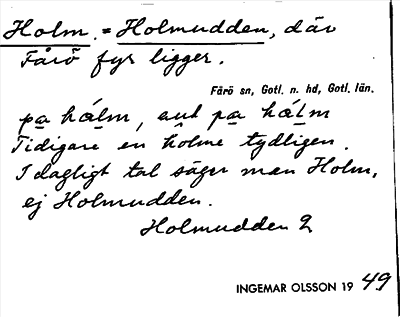 Holm. = Holmudden, där
Fårö fyr ligger.
Fårö sn, Gotl. n. hd, Gotl. län.
pa hálm, aut pa hálm
Tidigare en holme tydligen.
I dagligt tal säger man Holm,
ej Holmudden.
Holmudden 2
INGEMAR OLSSON 19 49